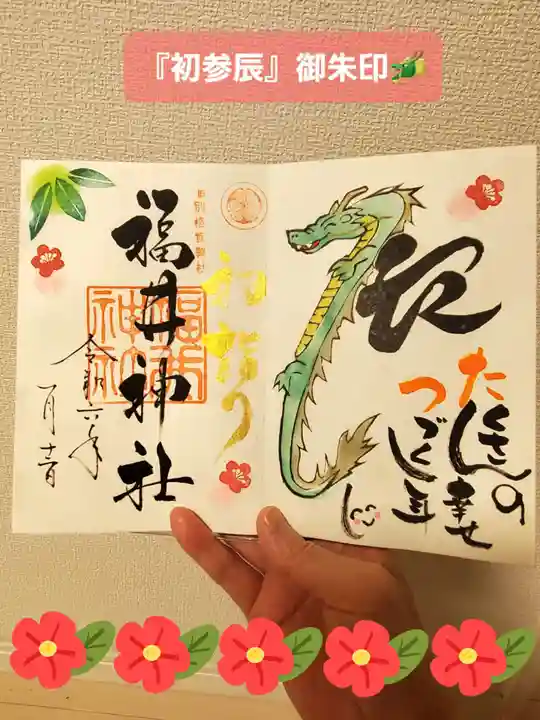 『初参辰』御朱印
たくさんの幸せ
つづく年
に
初詣り
旧別格官幣社
福井神社
福井神社
令和六年
一月